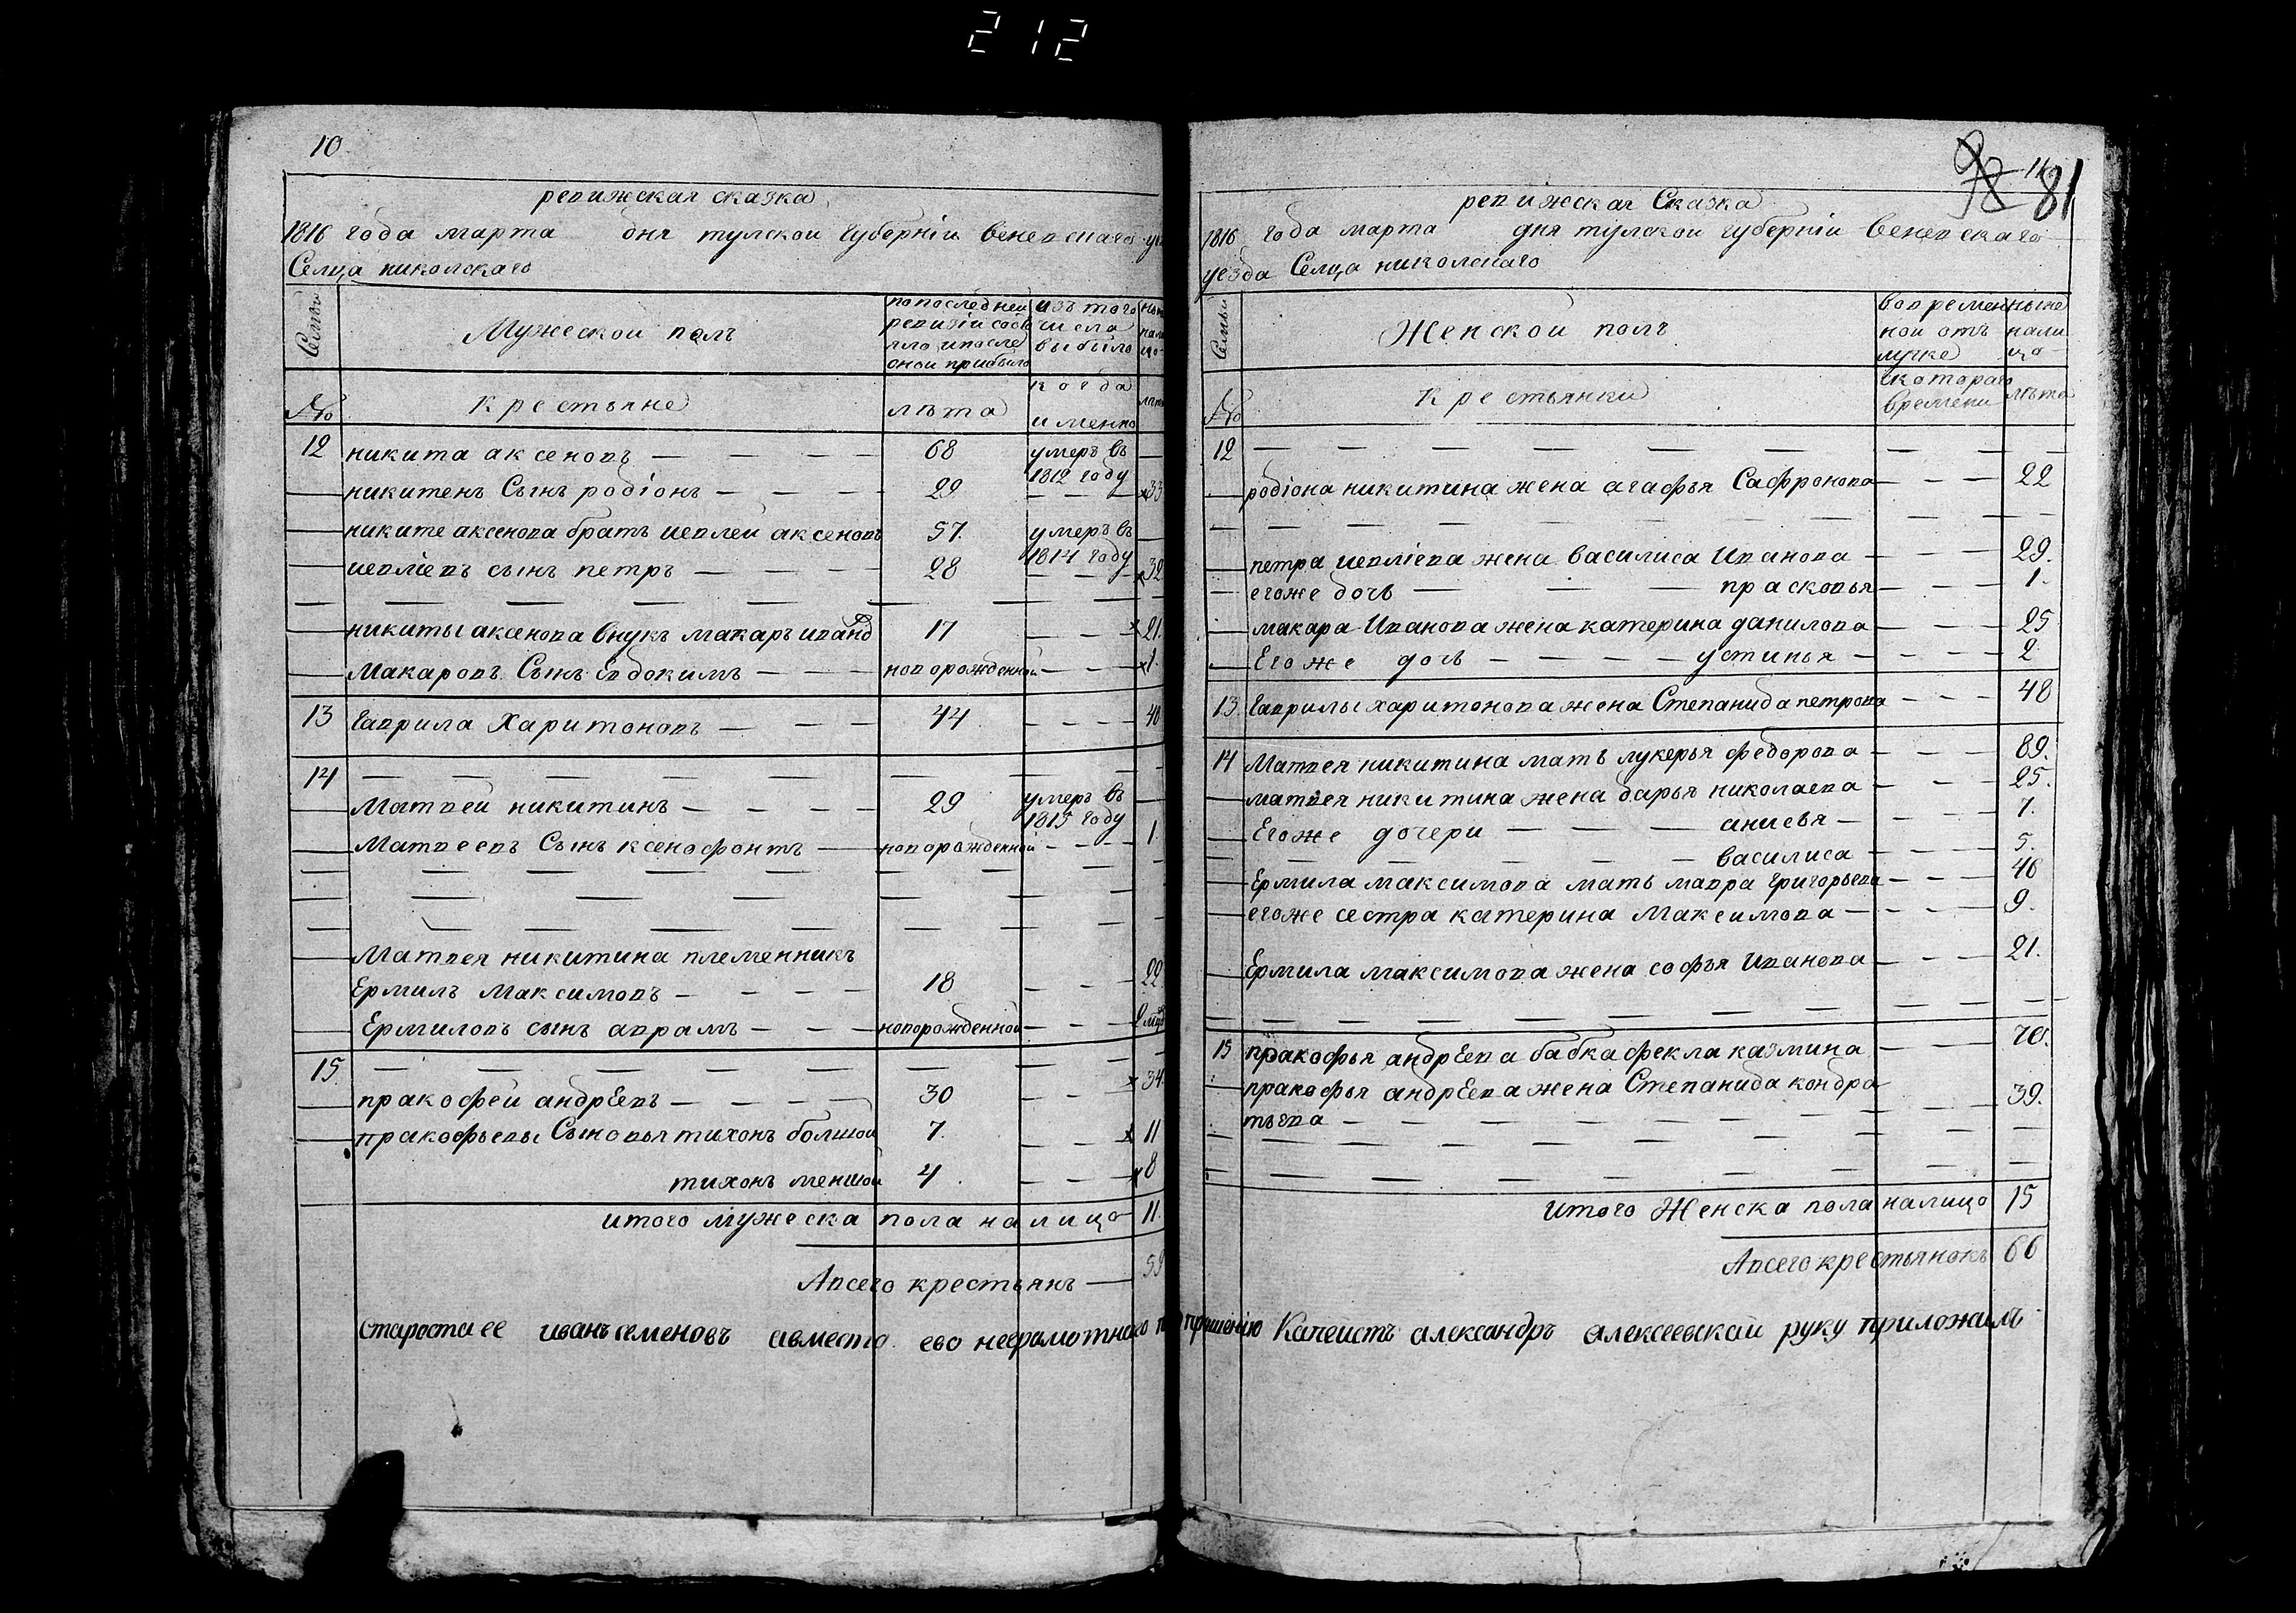 212
10
ревижская сказка
1816 года марта дня тулской губерніи веневскаго
Селца николскаго
Семьи
Мужеской полъ
по последней
ревизіи состо
яло и после
оной прибыло
изъ того
числа
выбыло
№
крестьяне
лѣта
когда
именно
12 никита аксеновъ — — — — 68 умеръ въ 1812 году —
никитенъ Сынъ родіонъ — — — — 29 — — — 33
никите аксенова братъ иевлей аксеновъ 57. умеръ въ 1814 году —
иевліевъ сынъ петръ — — — — 28 — — — 32
никиты аксенова внукъ макаръ иванов 17 — — 21.
Макаровъ Сынъ Евдокимъ — — — новорожденной — — — 1.
13 Гаврила Харитоновъ — — — 44 — — — — 48
14 — — — — —
Матвей никитинъ — — — — 29 умеръ въ 1815 году —
Матвеевъ Сынъ ксенофонтъ — новорожденной — — — — 1.
Матвея никитина племенникъ
Ермилъ Максимовъ — — — — 18 — — — 22
Ермиловъ сынъ аврамъ — — — новорожденной — — — 2 мцо
15. — — — — —
пракофей андрЕевъ — — — — 30 — — 34.
пракофьевы Сыновья тихонъ болшой 7. — — 11
тихонъ меншой 4. — — — 8
итого мужеска пола налицо 11.
Авсего крестьянъ — 59
Староста ее иванъ семеновъ авместо ево неграмотнаго по прошенію Капеистъ александръ алексеевскай руку приложилъ
98 11 81
ревижская Сказка
1816 года марта дня тулской губерніи веневскаго
уезда Селца николскаго
Семьи
Женской полъ
во времен
ной отъ
лучке
ныне
нали
цо
№
крестьянки
скотораго
времени
лѣта
12 — — — — — — — —
родіона никитина жена агафья Сафронова — — — 22
петра иевліева жена василиса Иванова — — — 29.
егоже дочь — — — прасковья — — — 1.
макара Иванова жена катерина данилова — — — 25
Егоже дочь — — — — устинья — — — — 2
13. Гаврилы харитонова жена Степанида петрова — — — 48
14 Матвея никитина мать лукерья федорова — — — 89.
матвея никитина жена дарья николаева — — — 25.
Егоже дочери — — — анисья — — — — 7.
василиса — — — — 5.
Ермила максимова мать мавра григорьева — — — 48
егоже сестра катерина Максимова — — — — 9.
Ермила максимова жена софья Иванова — — — 21.
15 пракофья андрЕева бабка фекла казмина — — — 70.
пракофья андрЕева жена Степанида кондра
тьева — — — — — — — — 39.
итого Женска пола налицо 15
Авсего крестьянокъ 66